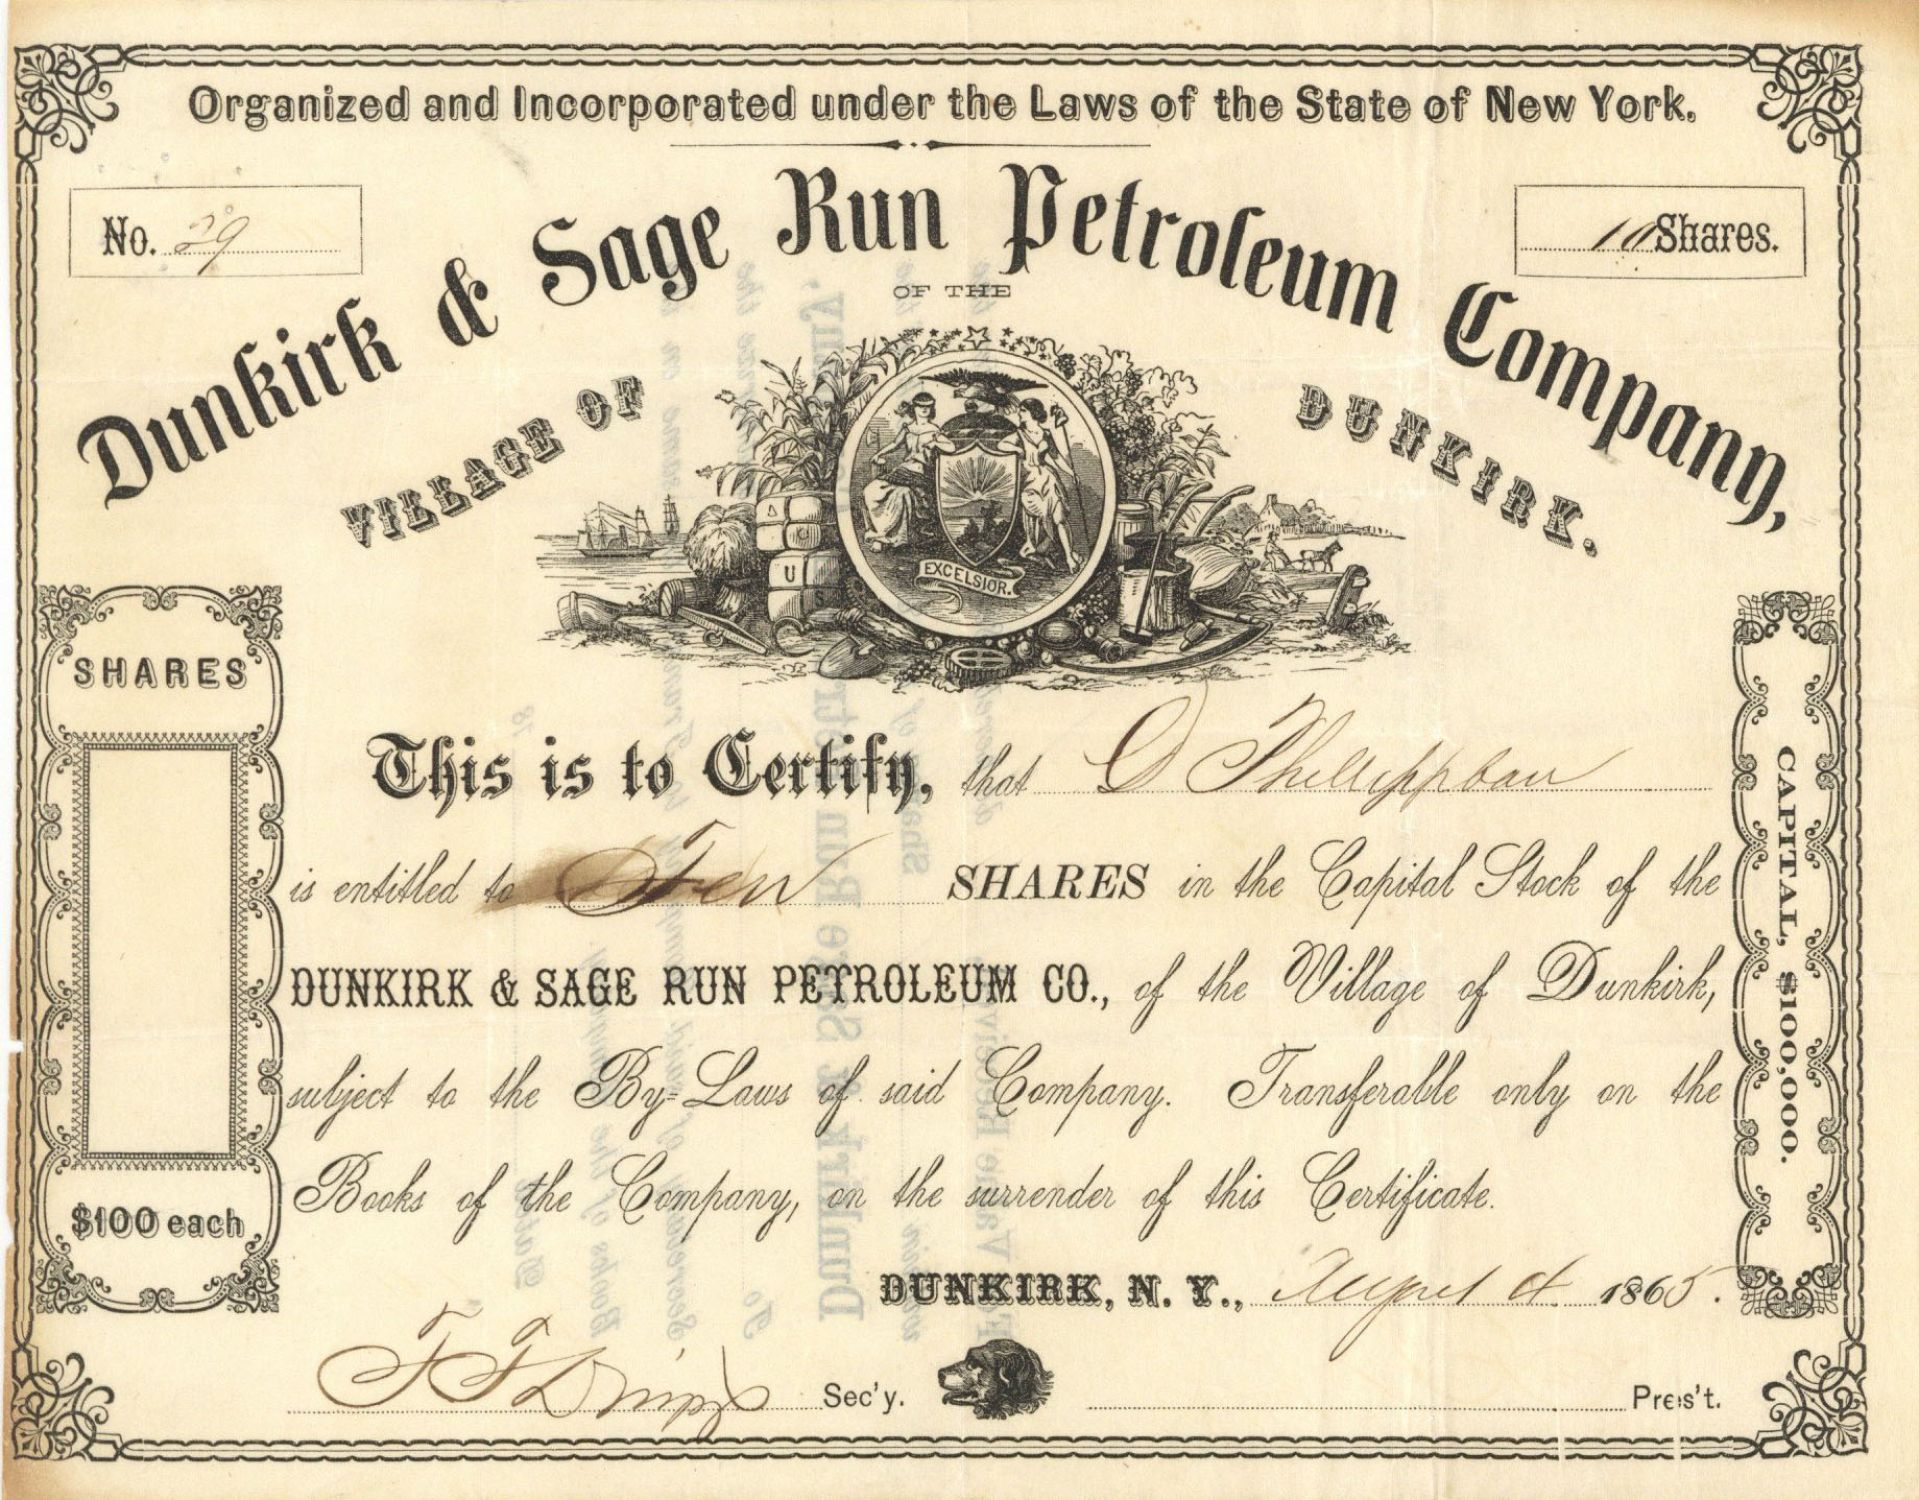 Organized and Incorporated under the Laws of the State of New York.
No. 29
10 Shares.
Dunkirk & Sage Run Petroleum Company,
OF THE
VILLAGE OF DUNKIRK.
EXCELSIOR.
U S
SHARES
$100 each
CAPITAL, $100,000.
This is to Certify, that D
is entitled to Ten SHARES in the Capital Stock of the
DUNKIRK & SAGE RUN PETROLEUM CO., of the Village of Dunkirk,
subject to the By-Laws of said Company. Transferable only on the
Books of the Company, on the surrender of this Certificate.
DUNKIRK, N. Y., August 4 1865.
Sec'y.
Pres't.